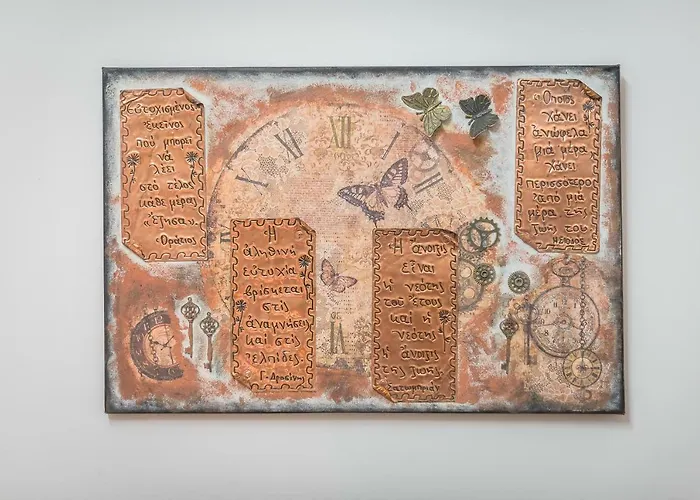 Εὐτυχισμένος
ἐκεῖνος
ποὺ μπορεῖ
νὰ
λέει
στὸ τέλος
κάθε μέρας
«ἔζησα».
Ὁράτιος
Ἡ
ἀληθινὴ
εὐτυχία
βρίσκεται
στὶς
ἀναμνήσεις
καὶ στὶς
ἐλπίδες.
Γ. Δροσίνης
Ἡ ἄνοιξις
εἶναι
ἡ νεότης
τοῦ ἔτους
καὶ ἡ
νεότης
ἡ ἄνοιξις
τῆς ζωῆς.
Σατωμπριάν
Ὅποιος
χάνει
ἀνώφελα
μιὰ μέρα
χάνει
περισσότερο
ἀπὸ μιὰ
μέρα τῆς
ζωῆς του
X
XI
XII
I
II
VI